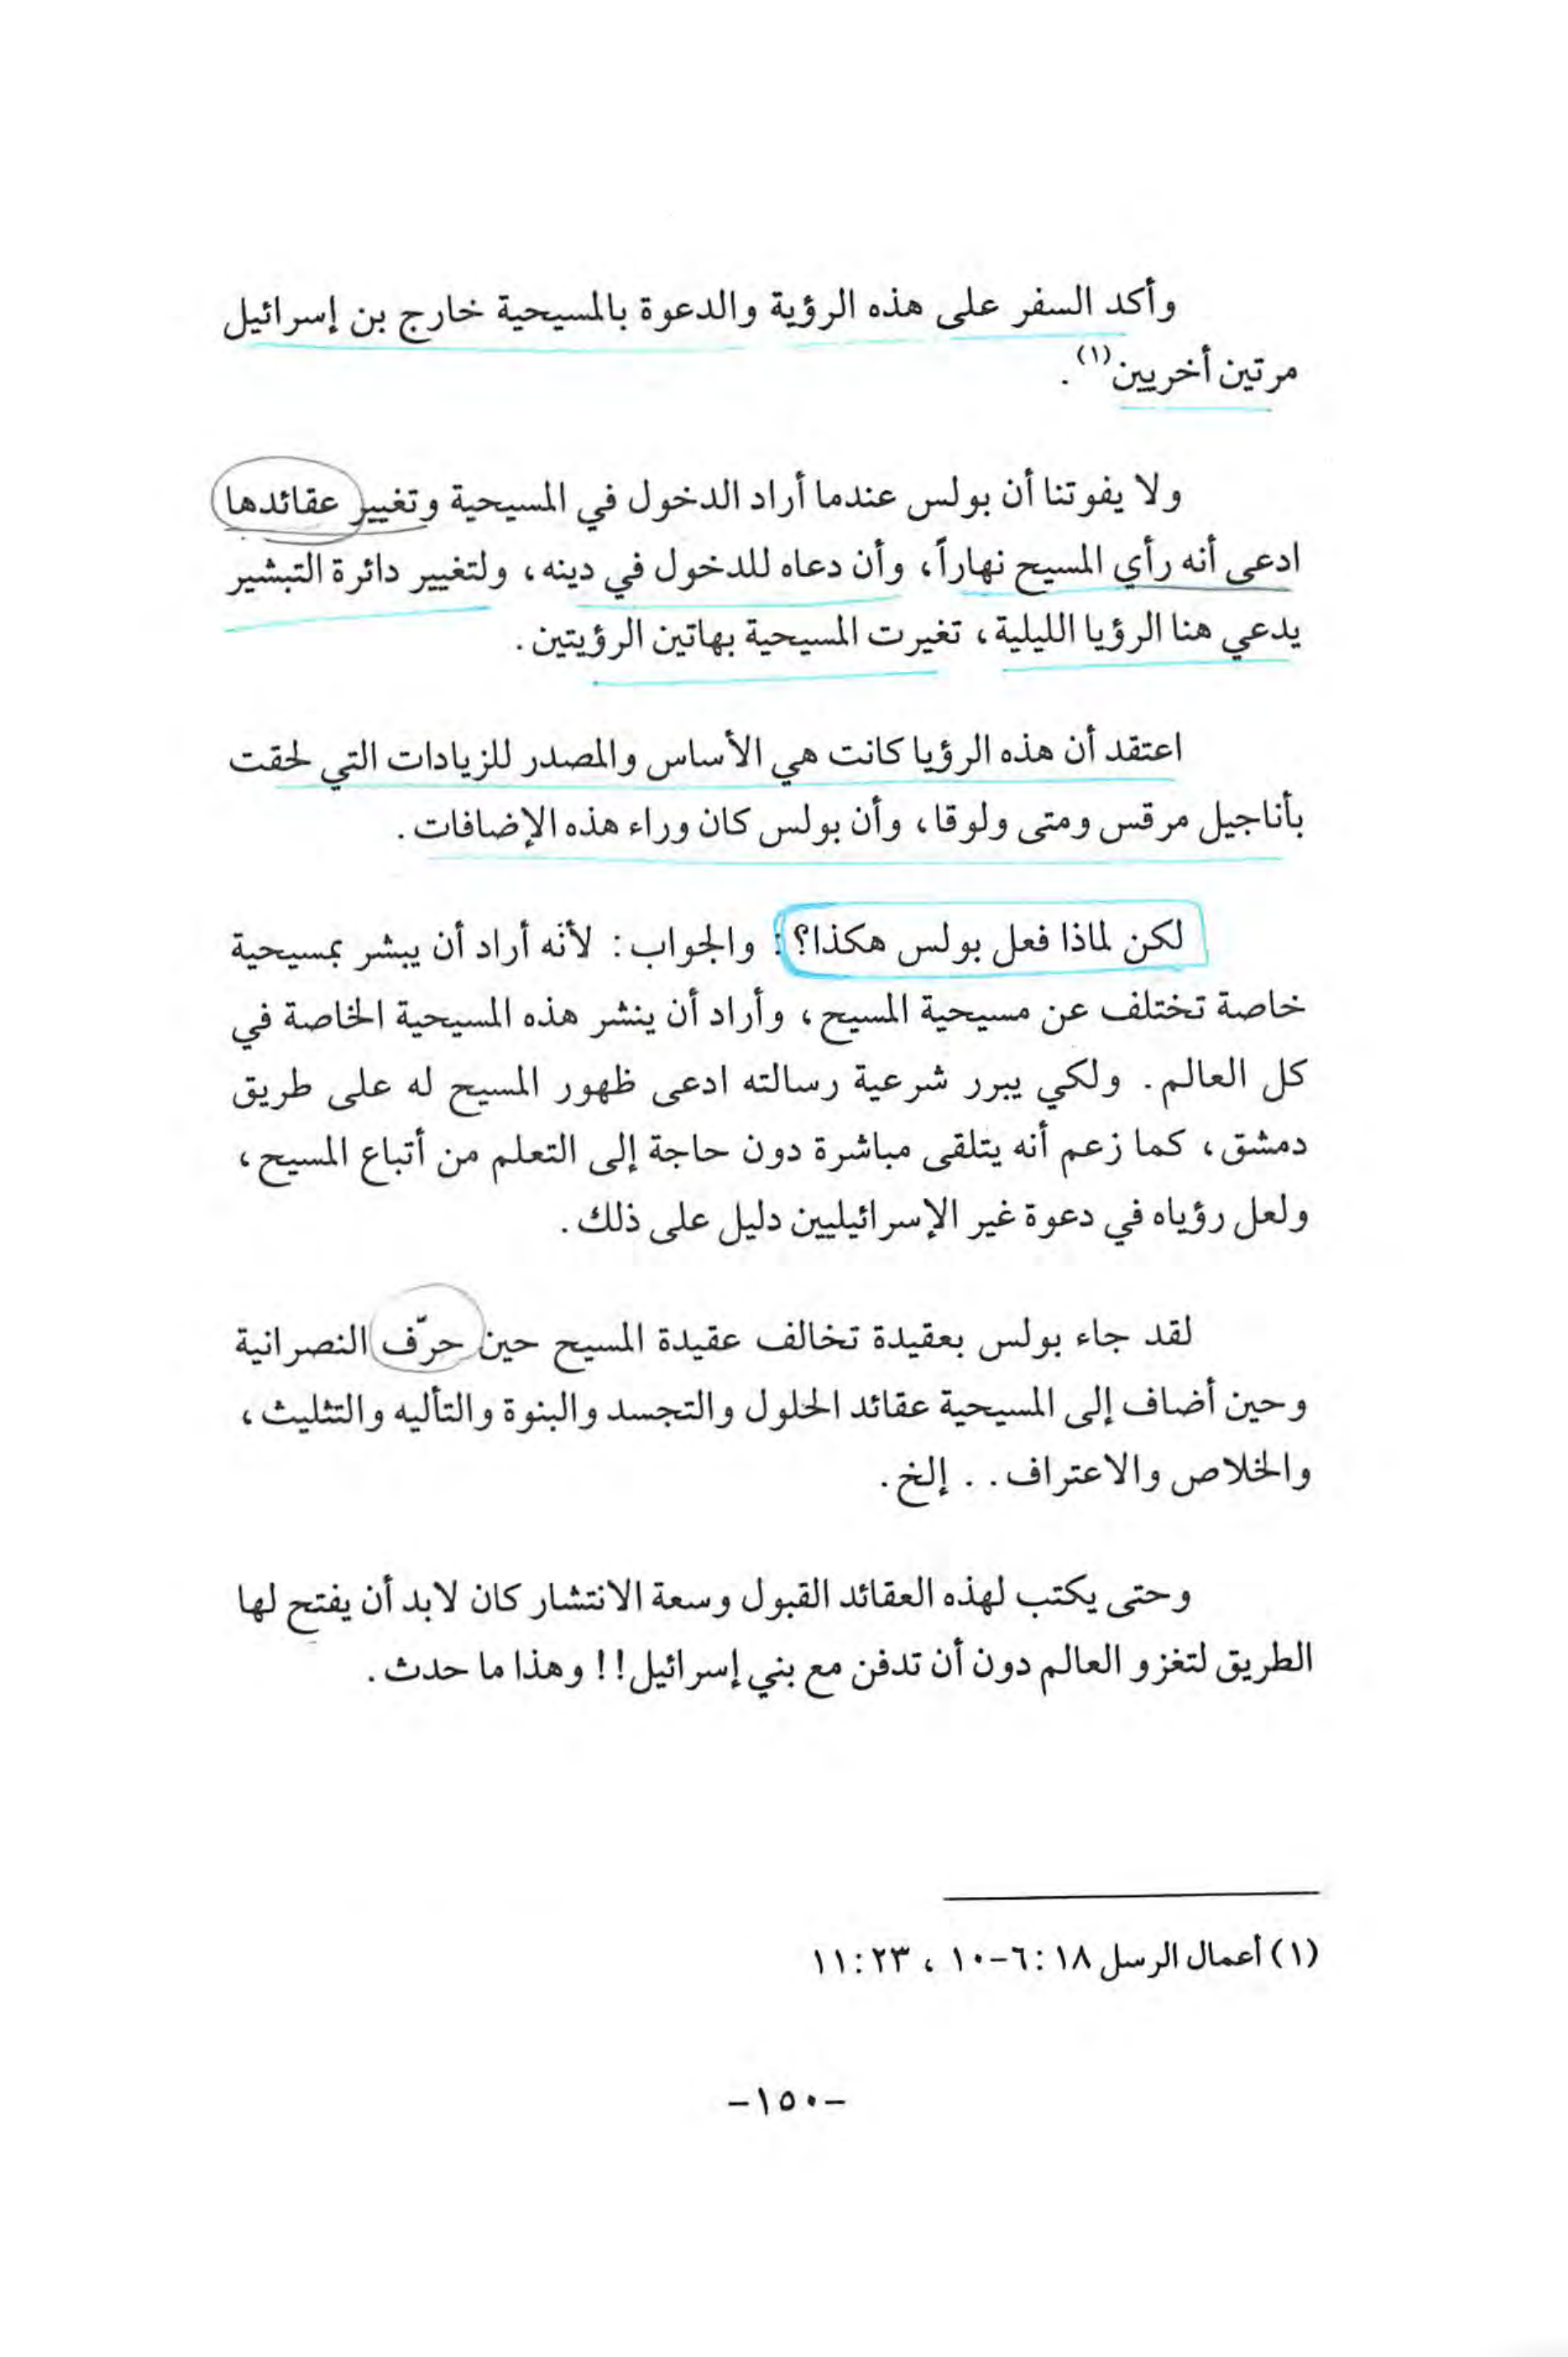 وأكد السفر على هذه الرؤية والدعوة بالمسيحية خارج بن إسرائيل
مرتين أخريين(١).
ولا يفوتنا أن بولس عندما أراد الدخول في المسيحية وتغيير عقائدها
ادعى أنه رأي المسيح نهاراً، وأن دعاه للدخول في دينه، ولتغيير دائرة التبشير
يدعي هنا الرؤيا الليلية، تغيرت المسيحية بهاتين الرؤيتين.
اعتقد أن هذه الرؤيا كانت هي الأساس والمصدر للزيادات التي لحقت
بأناجيل مرقس ومتى ولوقا، وأن بولس كان وراء هذه الإضافات.
لكن لماذا فعل بولس هكذا؟: والجواب: لأنه أراد أن يبشر بمسيحية
خاصة تختلف عن مسيحية المسيح، وأراد أن ينشر هذه المسيحية الخاصة في
كل العالم. ولكي يبرر شرعية رسالته ادعى ظهور المسيح له على طريق
دمشق، كما زعم أنه يتلقى مباشرة دون حاجة إلى التعلم من أتباع المسيح،
ولعل رؤياه في دعوة غير الإسرائيليين دليل على ذلك.
لقد جاء بولس بعقيدة تخالف عقيدة المسيح حين حرّف النصرانية
وحين أضاف إلى المسيحية عقائد الحلول والتجسد والبنوة والتأليه والتثليث،
والخلاص والاعتراف.. إلخ.
وحتى يكتب لهذه العقائد القبول وسعة الانتشار كان لابد أن يفتح لها
الطريق لتغزو العالم دون أن تدفن مع بني إسرائيل!! وهذا ما حدث.
(١) أعمال الرسل ١٨:٦-١٠، ٢٣:١١
-١٥٠-